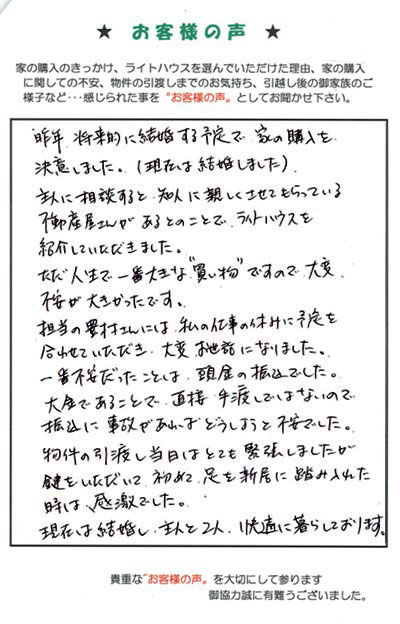 ★ お客様の声 ★
家の購入のきっかけ、ライトハウスを選んでいただけた理由、家の購入
に関しての不安、物件の引渡しまでのお気持ち、引越し後の御家族のご
様子など・・・感じられた事を“お客様の声„としてお聞かせ下さい。
昨年、将来的に結婚する予定で家の購入を
決意しました。(現在は結婚しました)
主人に相談すると知人に親しくさせてもらっている
不動産屋さんがあるとのことで、ライトハウスを
紹介していただきました。
ただ人生で一番大きな“買い物”ですので大変
不安が大きかったです。
担当の豊村さんには、私の仕事の休みに予定を
合わせていただき、大変お世話になりました。
一番不安だったことは、頭金の振込でした。
大金であることで、直接手渡しではないので
振込に事故があればどうしようと不安でした。
物件の引渡し当日はとても緊張しましたが
鍵をいただいて初めて足を新居に踏み入れた
時は、感激でした。
現在は結婚し、主人と2人、快適に暮らしております。
貴重な“お客様の声„を大切にして参ります
御協力誠に有難うございました。